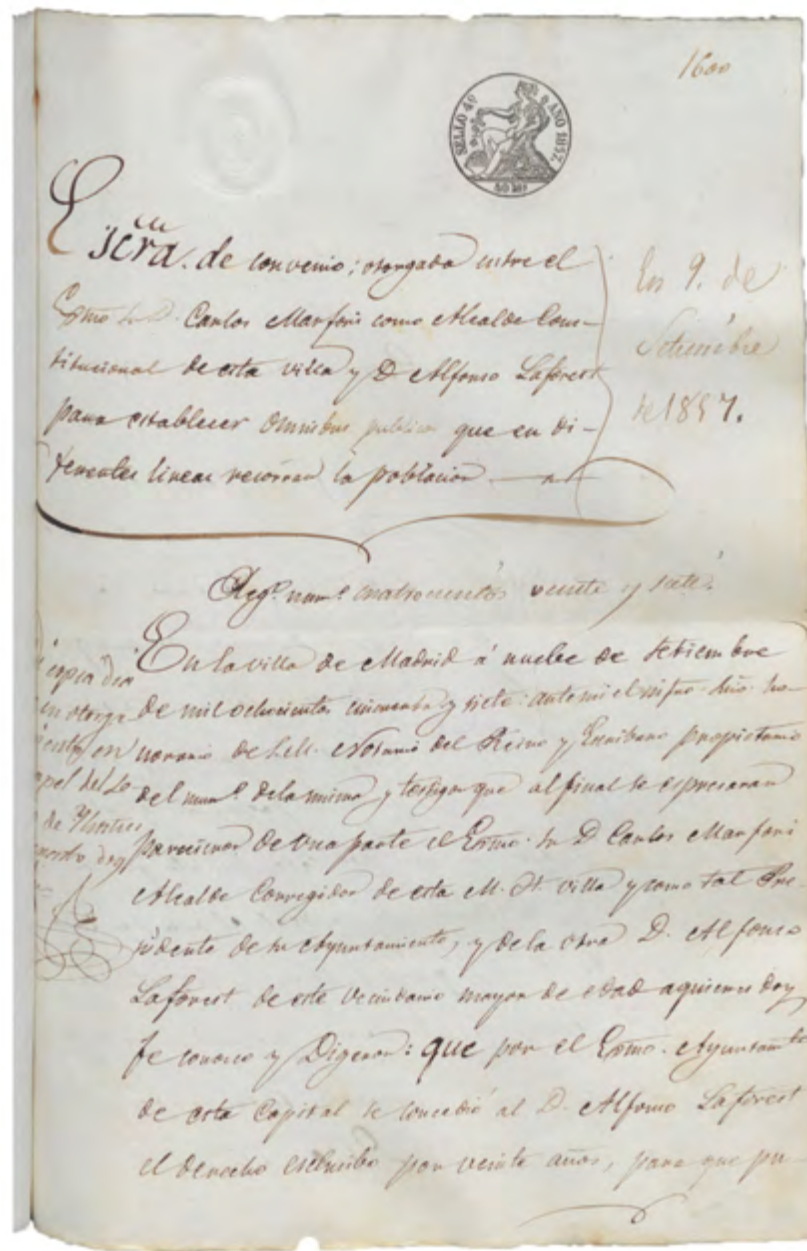 1600
SELLO 4º AÑO 1857.
40 Ms
Escra. de convenio; otorgada entre el
Exmo Sr. D. Carlos Marfori como Alcalde Cons-
titucional de esta villa y D Alfonso Laforest
para establecer Omnibus publicos que en di-
ferentes lineas recorran la poblacion
En 9. de
Setiembre
de 1857.
Regº. numº cuatrocientos veinte y siete.
En la villa de Madrid á nuebe de Setiembre
de mil ochocientos cincuenta y siete: ante mi el infro. Srio. ho-
norario de S.M. Notario del Reino y Escribano propietario
del numº. de la misma y testigos que al final se espresaran
parecieron de una parte el Exmo. Sr D Carlos Marfori
Alcalde Corregidor de esta M. H. villa y como tal Pre-
sidente de su Ayuntamiento, y de la otra D. Alfonso
Laforest de este vecindario mayor de edad a quienes doy
fe conozco y Digeron: que por el Exmo. Ayuntamto
de esta Capital se concedió al D. Alfonso Laforest
el derecho esclusibo por veinte años, para que pu-
copia dia
su otorga
miento en
papel del
de Ilustres